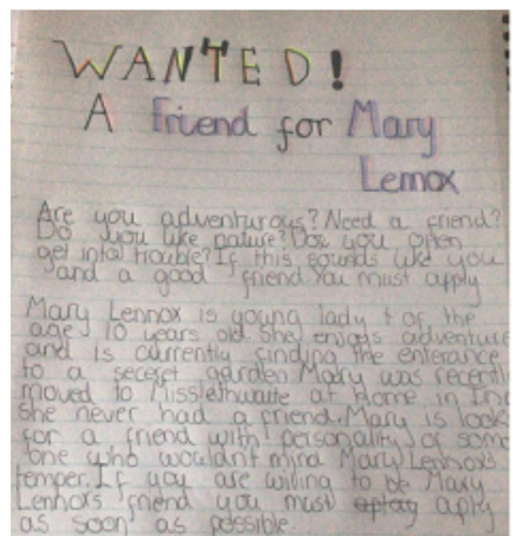 WANTED!
A friend for Mary
Lemox
Are you adventurous? Need a friend?
Do you like nature? Dox you often
get intol trouble? If this sounds like you
and a good friend. You must apply
Mary Lennox is young lady t of the
age 10 years old. She enjoys adventure
and is currently finding the enterance
to a seceret garden. Mary was recentl
moved to Misslethwaite at Home in In
she never had a friend. Mary is look
for a friend with personality of som
one who wouldn't mind Mary Lennox's
temper. If you are willing to be Mary
Lennox's friend you must aply
as soon as possible.